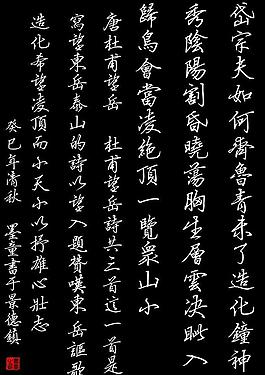 岱宗夫如何齊魯青未了造化鐘神
秀陰陽割昏曉蕩胸生層雲決眦入
歸鳥會當凌絕頂一覽眾山小
唐杜甫望岳 杜甫望岳詩共三首這一首是
寫望東岳泰山的詩以望入題贊嘆東岳謳歌
造化希望凌頂而小天小以抒雄心壯志
癸巳年清秋 墨童書于景德鎮